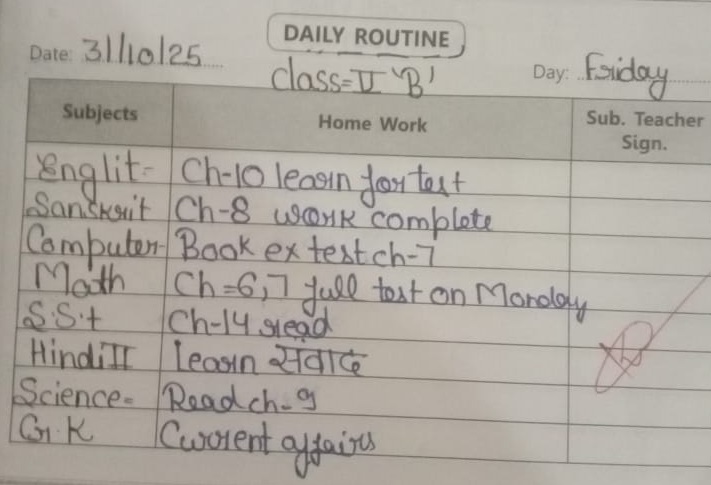 DAILY ROUTINE
Date: 31/10/25
Class=II 'B'
Day: Friday
Subjects Home Work Sub. Teacher Sign.
Eng lit- Ch-10 learn for test
Sanskrit Ch-8 work complete
Computer- Book ex test ch-7
Math Ch=6,7 full test on Monday
S.S.t Ch-14 read
Hindi II learn संवाद
Science- Read ch-9
G.K Current affairs